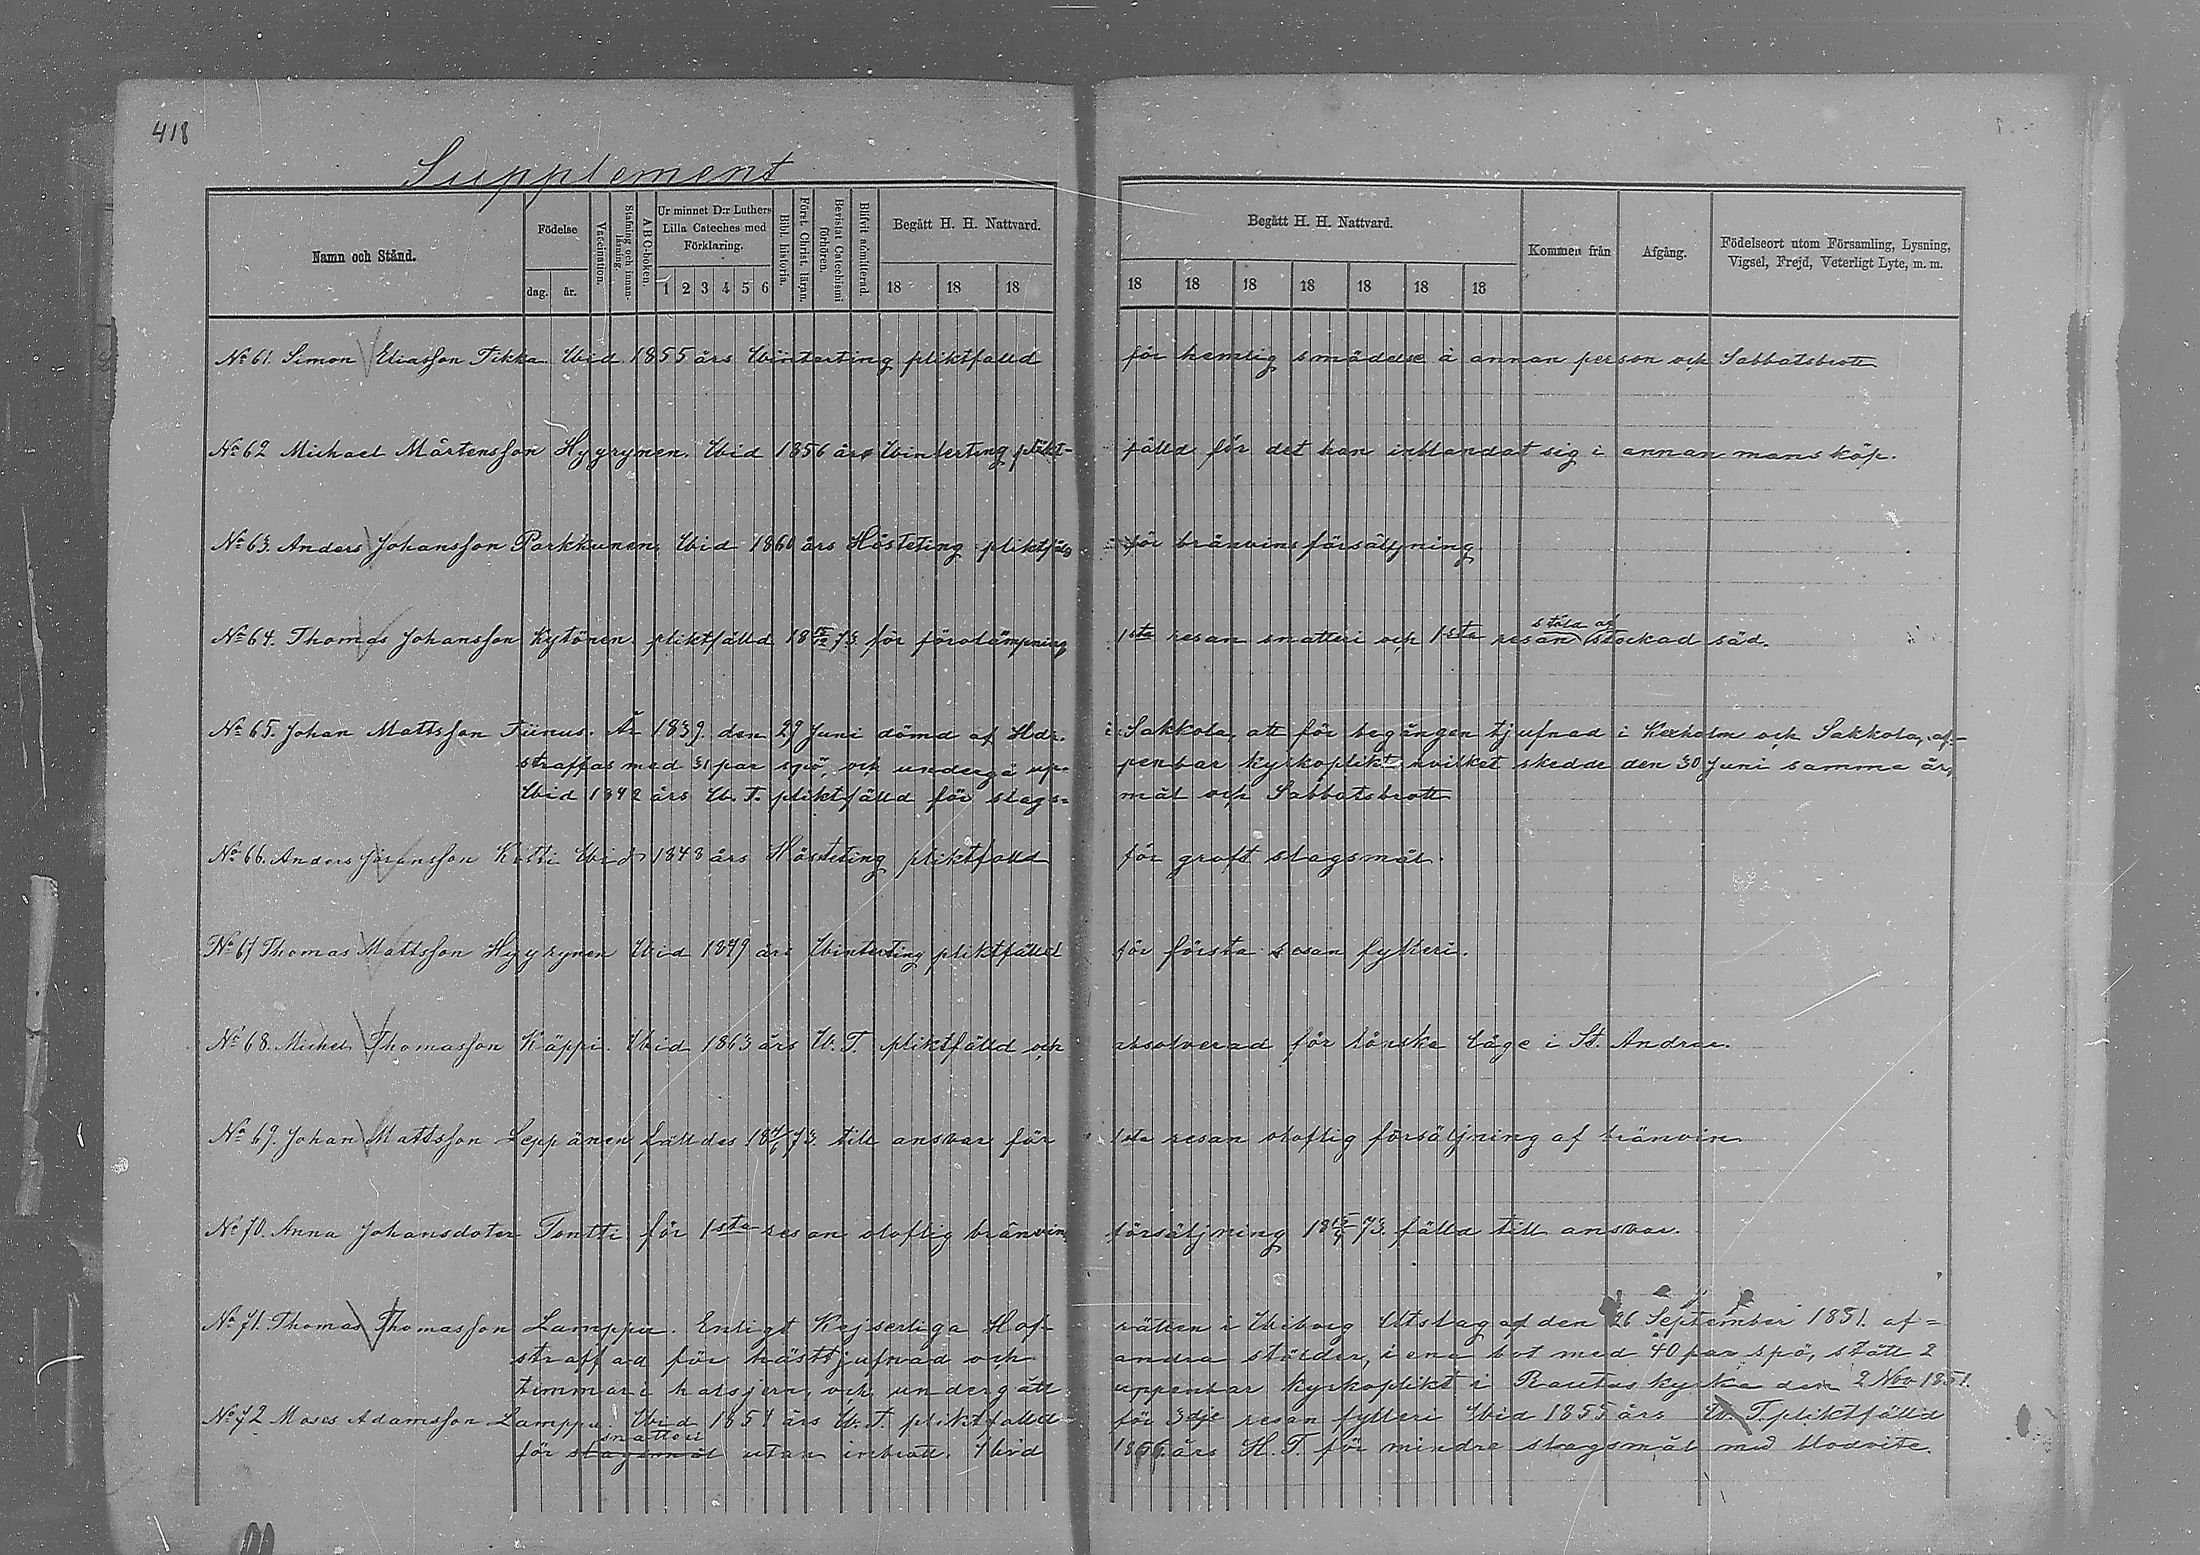 418
Supplement
Namn och Stånd.
Födelse
dag. år.
Vaccination.
Stafning och innanläsning.
A B C-boken.
Ur minnet D:r Luthers Lilla Cateches med Förklaring.
1 2 3 4 5 6
Bibl. historia.
Först. Christ. läran.
Bevistat Catechismi förhören.
Blifvit admitterad.
Begått H. H. Nattvard.
18 18 18
Begått H. H. Nattvard.
18 18 18 18 18 18 18
Kommen från
Afgång.
Födelseort utom Församling, Lysning, Vigsel, Frejd, Veterligt Lyte, m. m.
No 61. Simon Eliasson Tikka Wid 1855 års Winterting pliktfälld för hemlig smädelse å annan person och Sabbatsbrott
No 62 Michael Mårtensson Hyyrynen. Wid 1856 års Winterting plikt- fälld för det han inblandat sig i annan mans köp.
No 63. Anders Johansson Parkkunen. Wid 1860 års Hösteting pliktfäld för bränvins försälljning
No 64. Thomas Johansson Kytönen pliktfälld 18 73 för förolämpning 1sta resan snatteri och 1sta resan stöld af stockad säd.
No 65. Johan Mattsson Tiinus. År 1839. den 29 Juni dömd af Hdr. i Sakkola, att för begången tjufnad i Kexholm och Sakkola, af-
straffas med 31 par spö, och undergå up- penbar kyrkoplikt hvilket skedde den 30 Juni samma år,
Wid 1842 års W. T. pliktfälld för slags- mål och Sabbatsbrott
No 66. Anders Johansson Kitti Wid 1848 års Hösteting pliktfälld för groft slagsmål.
No 67 Thomas Mattsson Hyyrynen Wid 1849 års Winterting pliktfälld för första resan fylleri.
No 68. Michel Thomasson Käppi. Wid 1863 års W. T. pliktfälld och absolverad för lönska läge i St. Andrae.
No 69. Johan Mattsson Leppänen fälldes 18 73 till ansvar för 1sta resan oloflig försäljning af bränvin
No 70. Anna Johansdoter Tontti för 1sta resan oloflig bränvins försäljning 18 73. fälld till ansvar.
No 71. Thomas Thomasson Lamppu. Enligt Kejserliga Hof- rätten i Wiborg Utslag af den 26 September 1851. af=
straffad för hästtjufnad och andra stölder, i ene bot med 40 par spö, stått 2
timmar i halsjern, och undergått uppenbar kyrkoplikt i Rautus kyrka den 2 Nov 1851.
No 72 Moses Adamsson Lamppu. Wid 1854 års W. T. pliktfälld för 3dje resan fylleri Wid 1855 års W. T. pliktfälld
för slagsmål snatteri utan inbrott. Wid 1856. års H. T. för mindre slagsmål med blodvite.